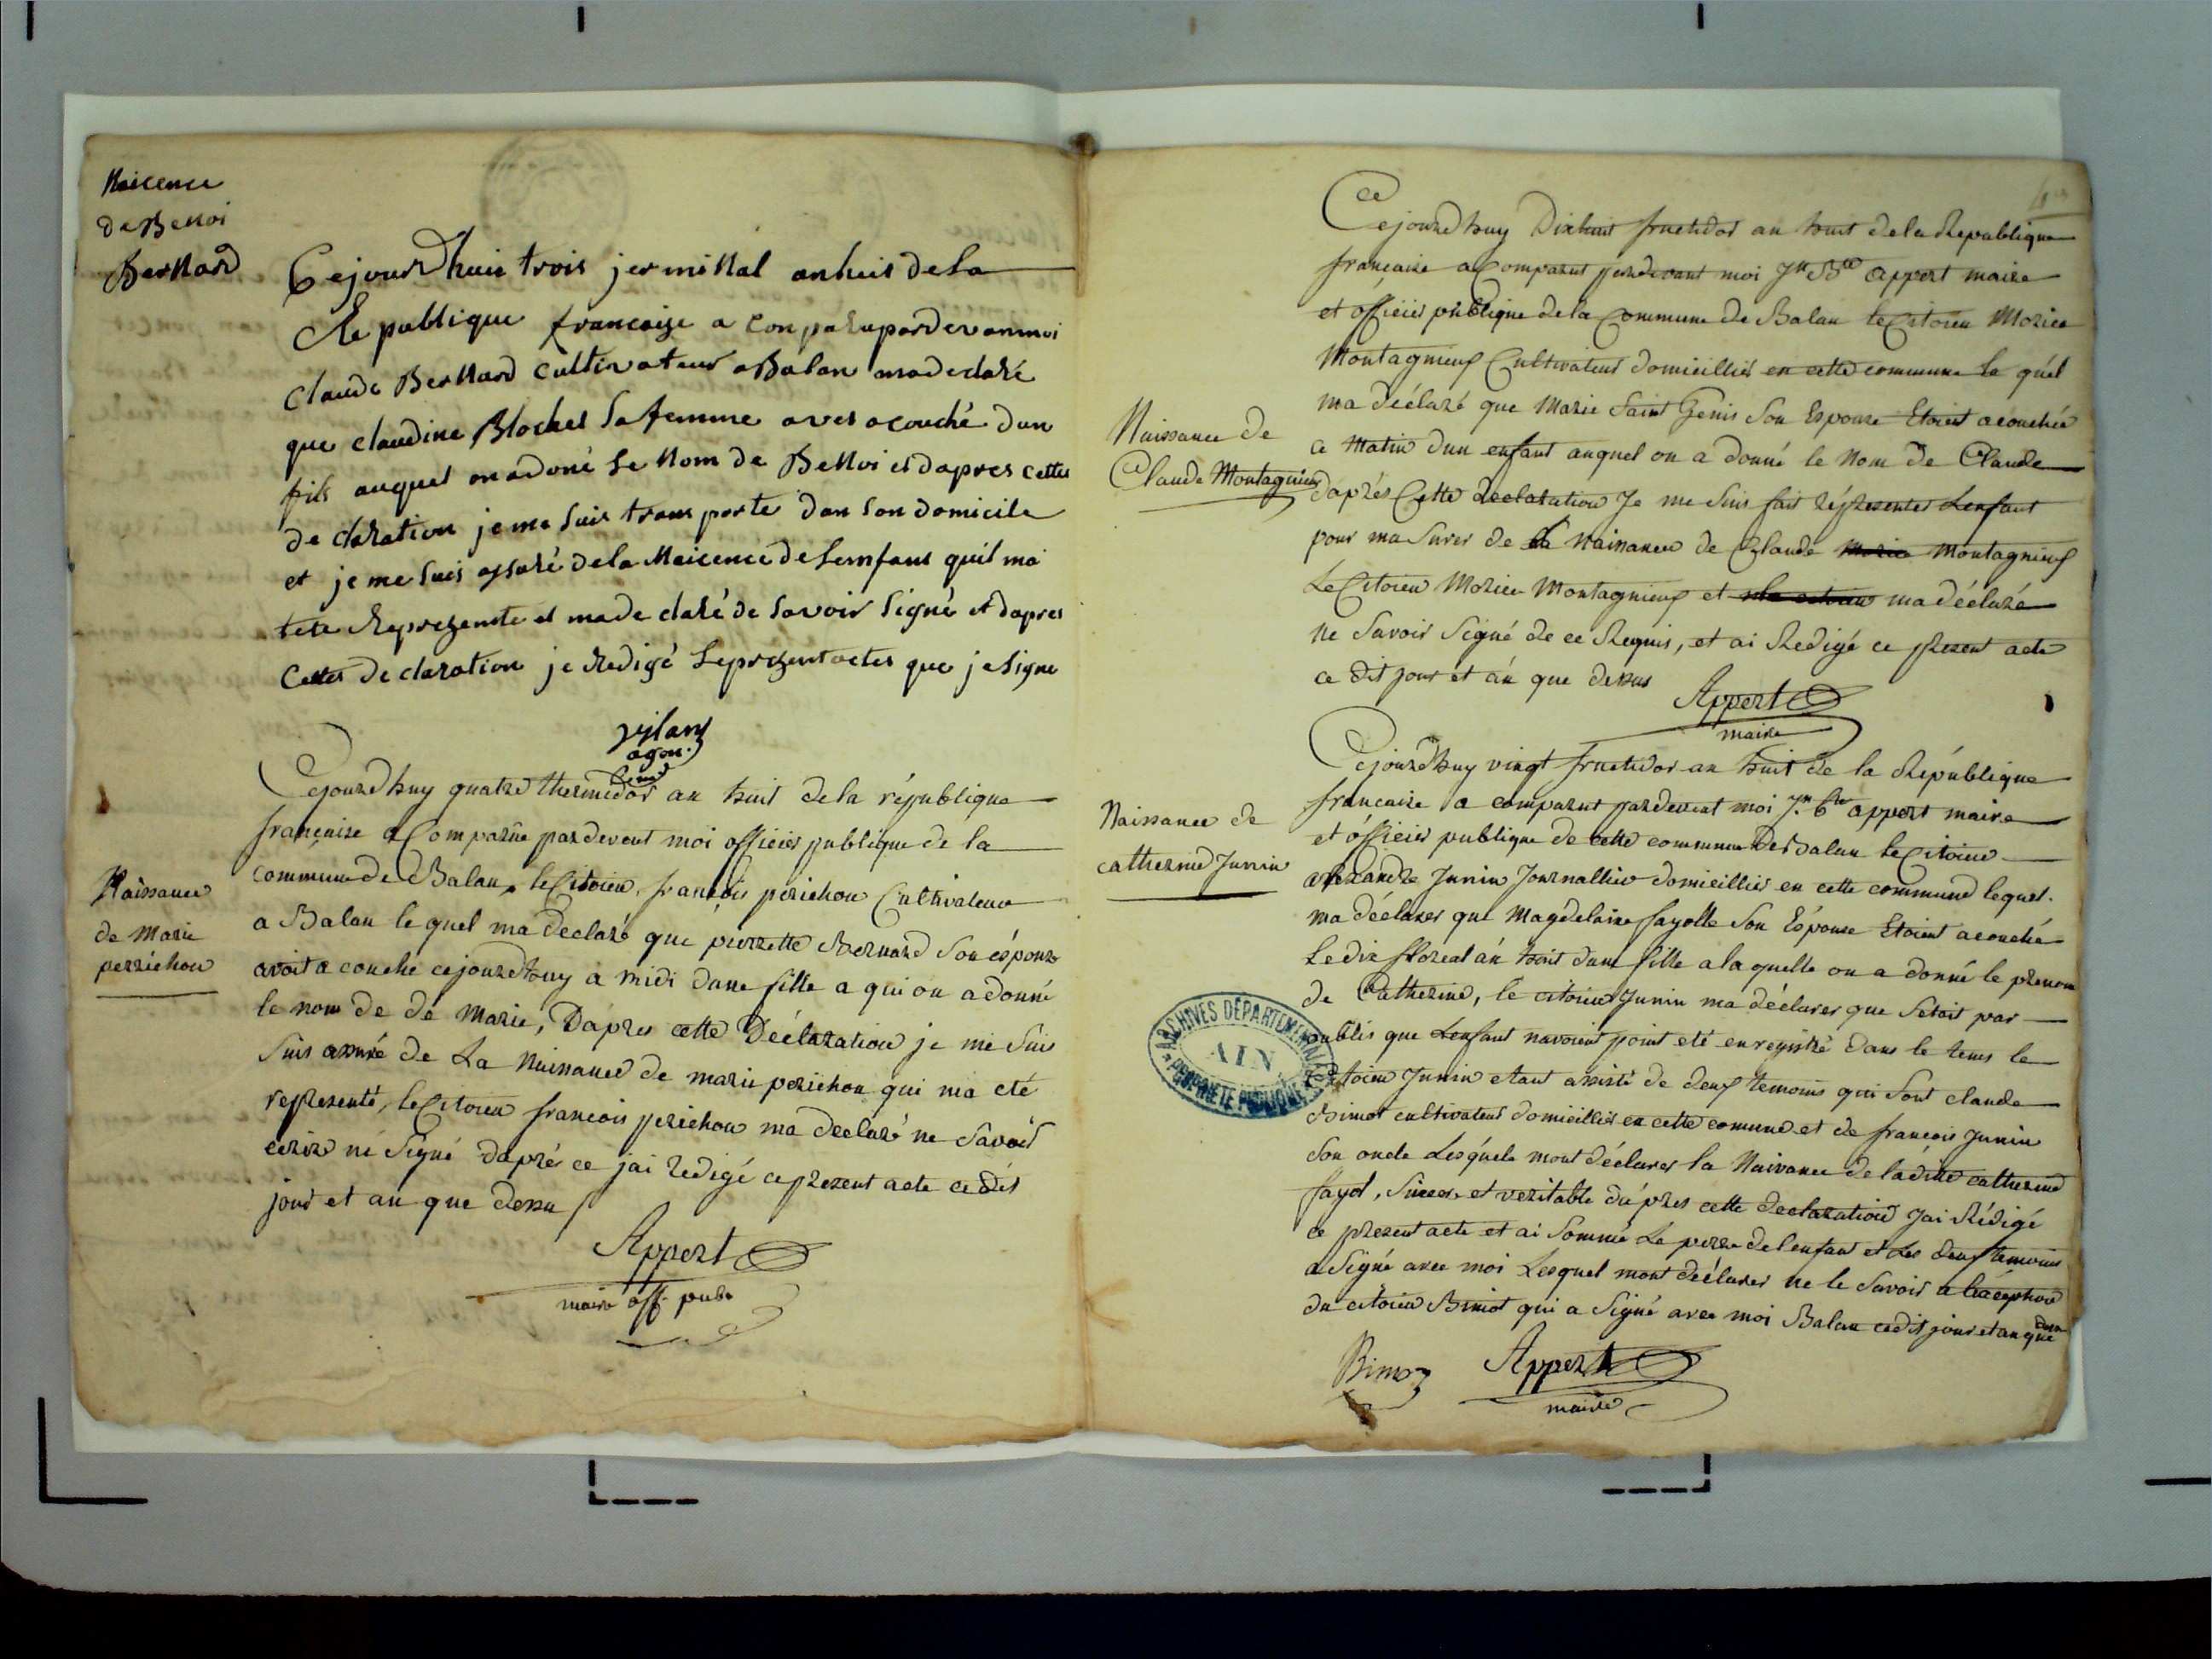 Naicence
de Benoi
Bernard
Cejourdhuis trois jerminal anhuit dela
Republique francaize a conparupardevanmoi
claude Bernard cultivateur aBalan madeclaré
que claudine Blochet Sa femme avet acouché dun
fils auquel onadoné Le Nom de Benoi et dapres cettes
declaration jeme Suis transporte dan Son domicile
et jeme Suis assuré dela Naicence deLemfant quil ma
tete Reprezente et madeclaré de Savoir Signé et dapres
Cettes declaration je Redigé Leprezentactes que jeSigne
agon.
Cejourdhuy quatre thermidor an huit dela république
française a Comparue pardevent moi officier publique de la
commune de Balan, le Citoien françois perichon Cultivateur
a Balan le quel ma declaré que pierrette Bernard Son épouze
avoit a couché cejourdhuy a midi dune fille a qui on a donné
le nom de de Marie, Dápres cette Déclaration je me Suis
Suis assuré de La Naissance de marie perichon qui ma eté
representé, le Citoien francois perichon ma declaré ne Savoir
ecrire ni Signé dapré ce jai redigé ce present acte cedit
jour et an que dessu
Naissance
de Marie
perrichon
Appert
maire off. publ
Ceejourdhuy Dixhuit fructidor an huit dela Republique
francaise a Comparut pardevant moi Jn Bte appert maire
et officier publique dela Commune de Balan le Citoien Morice
Montagnieux Cultivateur domicillier en cette commune le quél
ma déclaré que Marie Saint Genis Son Epouze Etoient acouchée
ce Matin dun enfant auquel on a donné le Nom de Claude
daprés Cette declaration Je me Suis fait réprezenter Lenfant
pour ma Surer de la Naissance de Claude Morice Montagnieux
Le Citoien Morice Montagnieux et ma déclaré
ne Savoir Signé de ce Requis, et ai Redigé ce present acte
ce dit jour et án que dessus
Naissance de
Claude Montagnieux
Appert
maire
Cejourdhuy vingt fructidor an huit de la République
francaise a comparut pardevent moi Jn Bte appert maire
et officier publique de cette commune de Balan le Citoien
alexandre Junin Journallier domicillier en cette commune lequel
ma déclarer que Magdelaine fayolle Son Epouse Etoient acouché
Le dix floreal án huit dune fille a la quelle on a donné le prenom
de Catherine, le citoien Junin ma déclarer que Setoit par
oublis que Lenfant navoient point eté enregistré dans le tems le
Citoien Junin etant assisté de deux temoins qui Sont claude
Bimot cultivateur domicillier en cette comune et de francois Junin
Son oncle Lesquels mont déclarer la Naisance de ladite catherine
fayol, Sincer et veritable dápres cette declaration Jai Rédigé
ce present acte et ai Sommé Le perre de lenfant et Les deux temoins
a Signé avec moi Lesquel mont déclarer ne le Savoir a léxception
du citoien Bimot qui a Signé avec moi Balan cedit jour et an que dessu
Naissance de
catherine Junin
Bimoz
Appert
maire
ARCHIVES DÉPARTEMENTALES
AIN
PROPRIÉTÉ PUBLIQUE